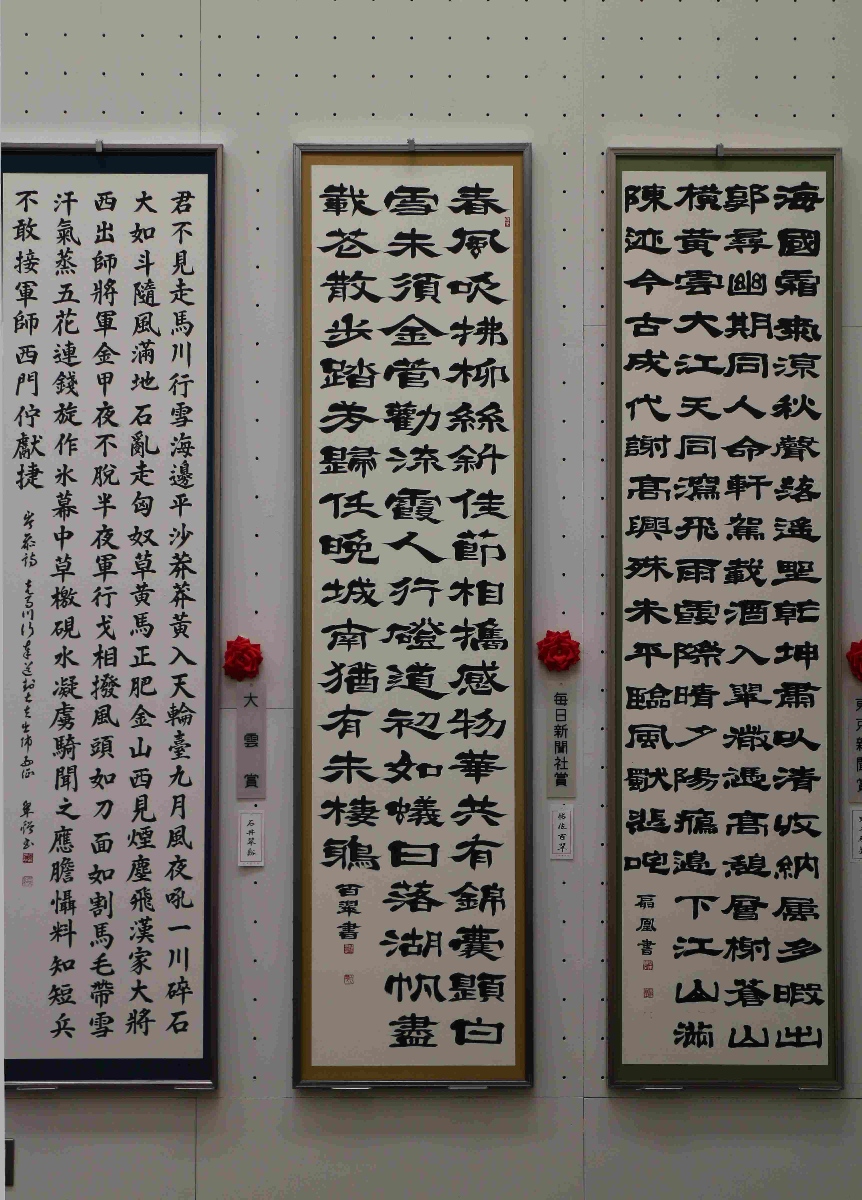 海國霜氣涼秋聲落遥乾坤肅以清收納屬多暇出
郭尋幽期同人命軒駕載酒入翠微憑高憩層榭蒼山
橫黃雲大江天同瀉飛雨際晴夕陽痕邊下江山滿
陳迹今古成代謝高興殊未平臨風歎悲咤
扇凰書
春風吹拂柳絲斜佳節相攜感物華共有錦囊題白
雪未須金管勸流霞人行磴道初如蟻日落湖帆盡
載花散步踏芳歸任晚城南猶有未棲鴉
百翠書
毎日新聞社賞
君不見走馬川行雪海邊平沙莽莽黃入天輪臺九月風夜吼一川碎石
大如斗隨風滿地石亂走匈奴草黃馬正肥金山西見煙塵飛漢家大將
西出師將軍金甲夜不脫半夜軍行戈相撥風頭如刀面如割馬毛帶雪
汗氣蒸五花連錢旋作氷幕中草檄硯水凝虜騎聞之應膽懾料知短兵
不敢接軍師西門佇獻捷
岑參詩 走馬川行奉送封大夫出師西征 翠谿書
大雲賞
石井翠谿